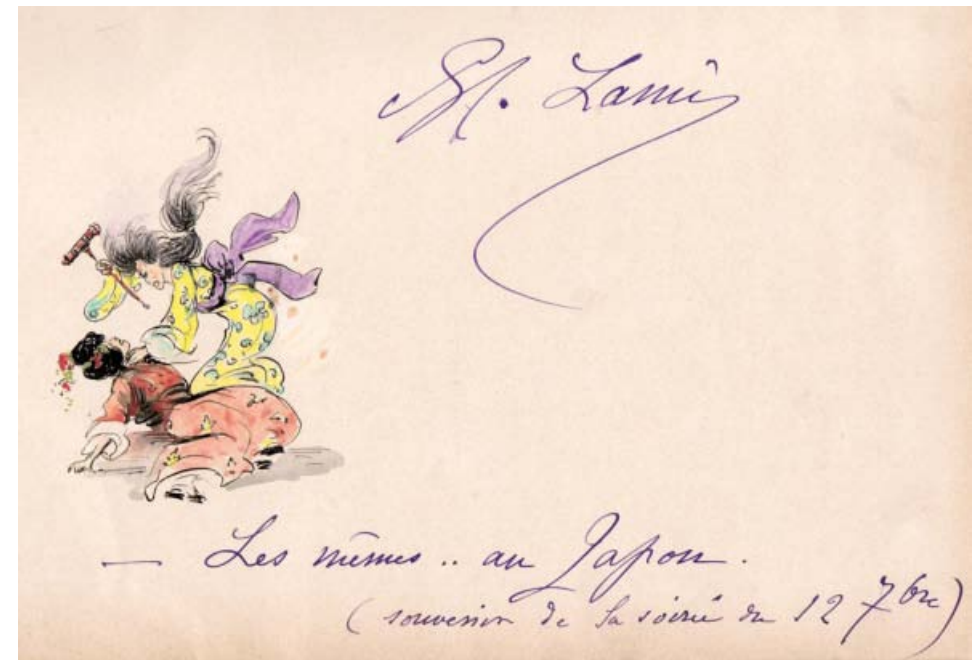 M. Lami
— Les mêmes .. au Japon.
(souvenir de la soirée du 12 7bre)